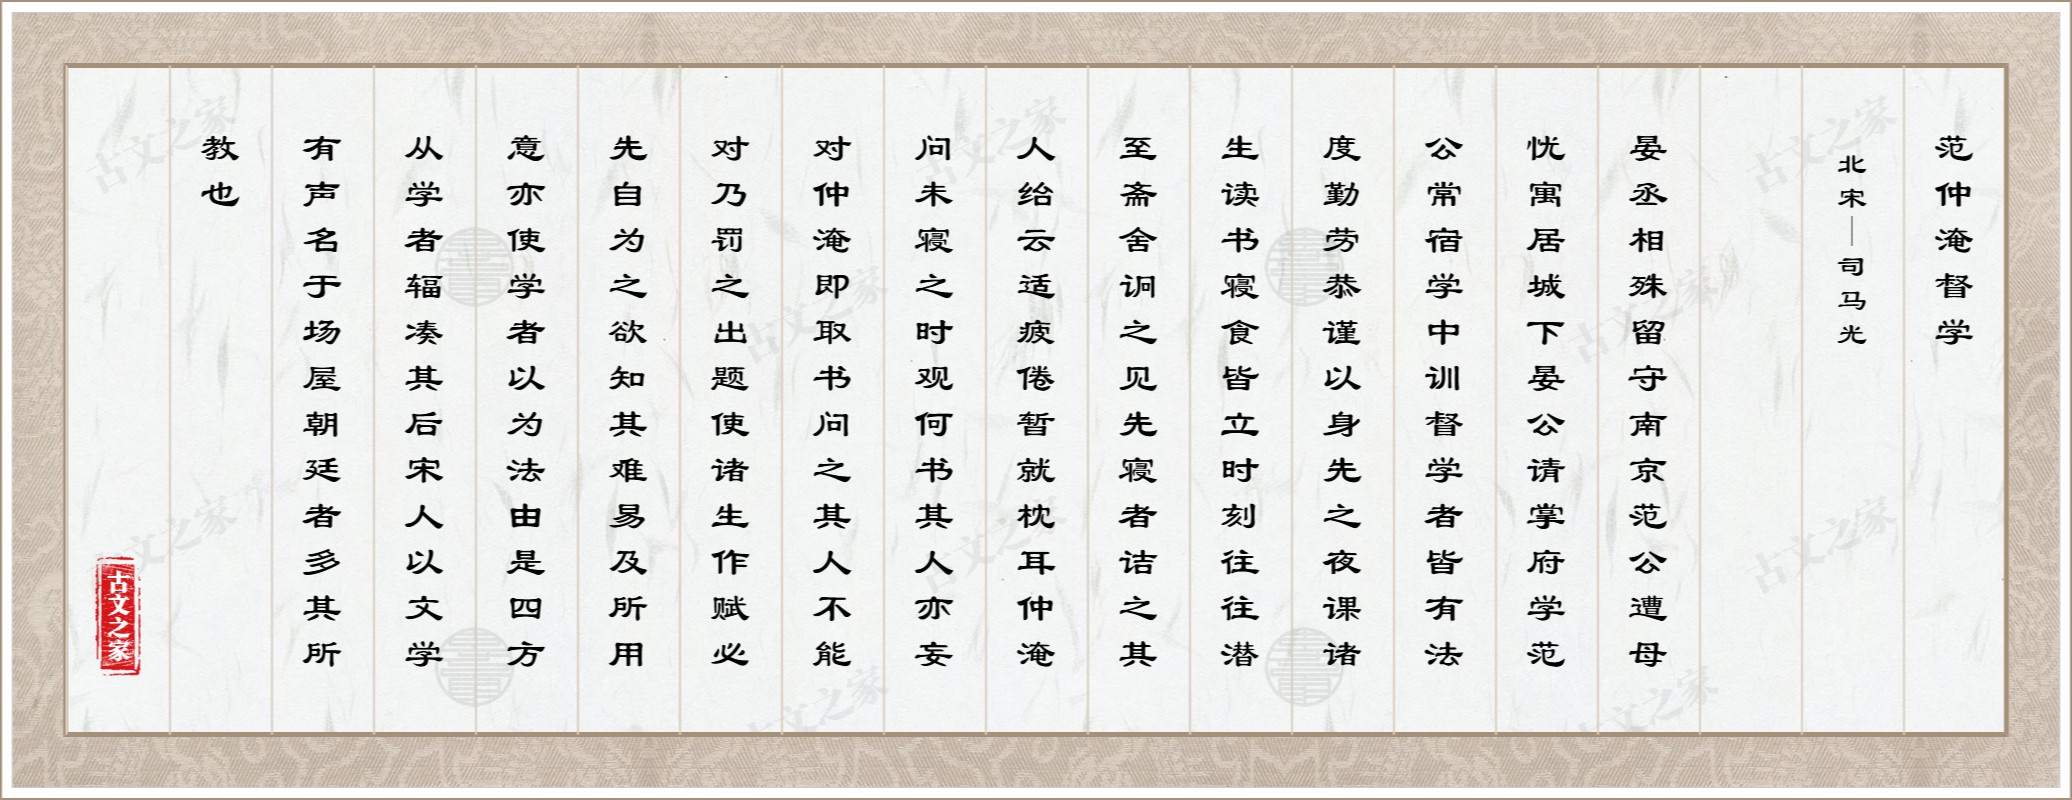 范仲淹督学
北宋—司马光
晏丞相殊留守南京范公遭母
忧寓居城下晏公请掌府学范
公常宿学中训督学者皆有法
度勤劳恭谨以身先之夜课诸
生读书寝食皆立时刻往往潜
至斋舍诇之见先寝者诘之其
人绐云适疲倦暂就枕耳仲淹
问未寝之时观何书其人亦妄
对仲淹即取书问之其人不能
对乃罚之出题使诸生作赋必
先自为之欲知其难易及所用
意亦使学者以为法由是四方
从学者辐凑其后宋人以文学
有声名于场屋朝廷者多其所
教也
古文之家